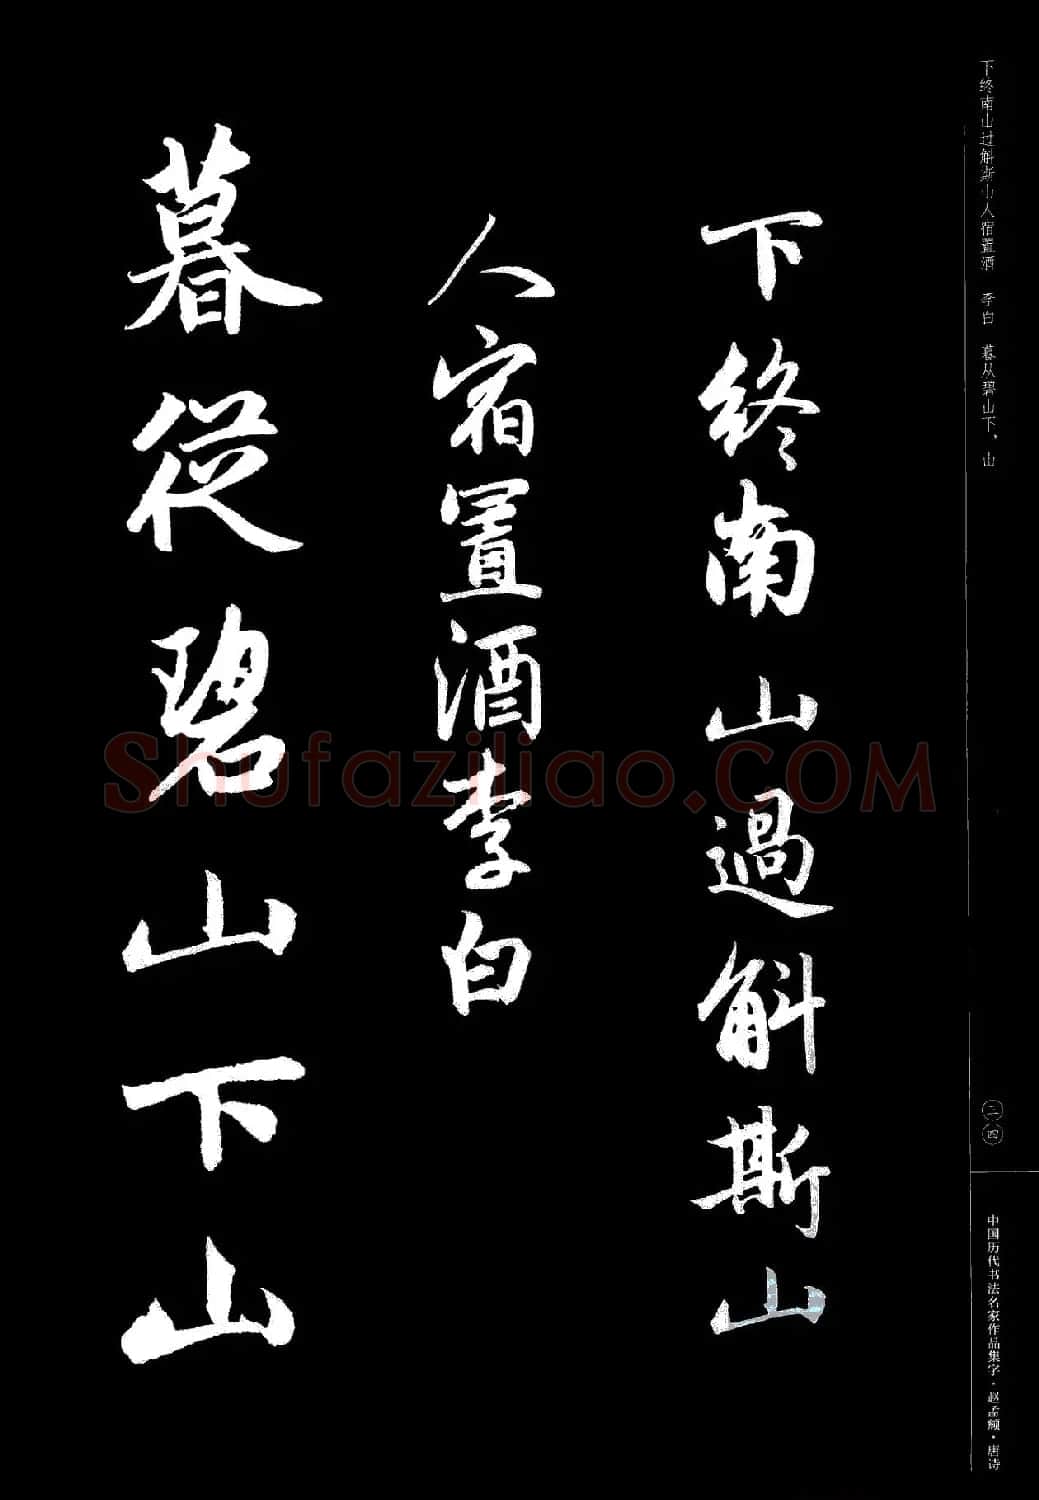 下终南山过斛斯山人宿置酒 李白 暮从碧山下，山
下終南山過斛斯山
人宿置酒李白
暮從碧山下山
二四
中国历代书法名家作品集字·赵孟頫·唐诗
Shufaziliao.COM